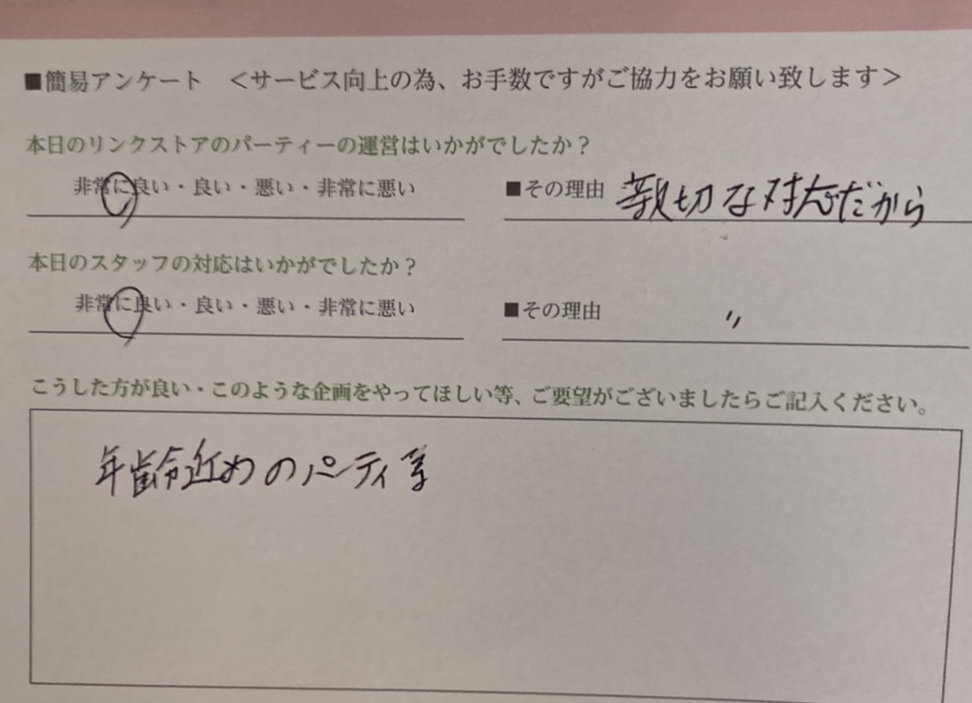 ■簡易アンケート <サービス向上の為、お手数ですがご協力をお願い致します>
本日のリンクストアのパーティーの運営はいかがでしたか?
非常に良い・良い・悪い・非常に悪い ■その理由 親切な対応だから
本日のスタッフの対応はいかがでしたか?
非常に良い・良い・悪い・非常に悪い ■その理由 〃
こうした方が良い・このような企画をやってほしい等、ご要望がございましたらご記入ください。
年齢近めのパーティ等